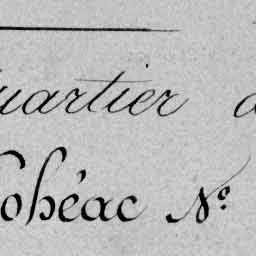 uartier d
Lohéac Nº